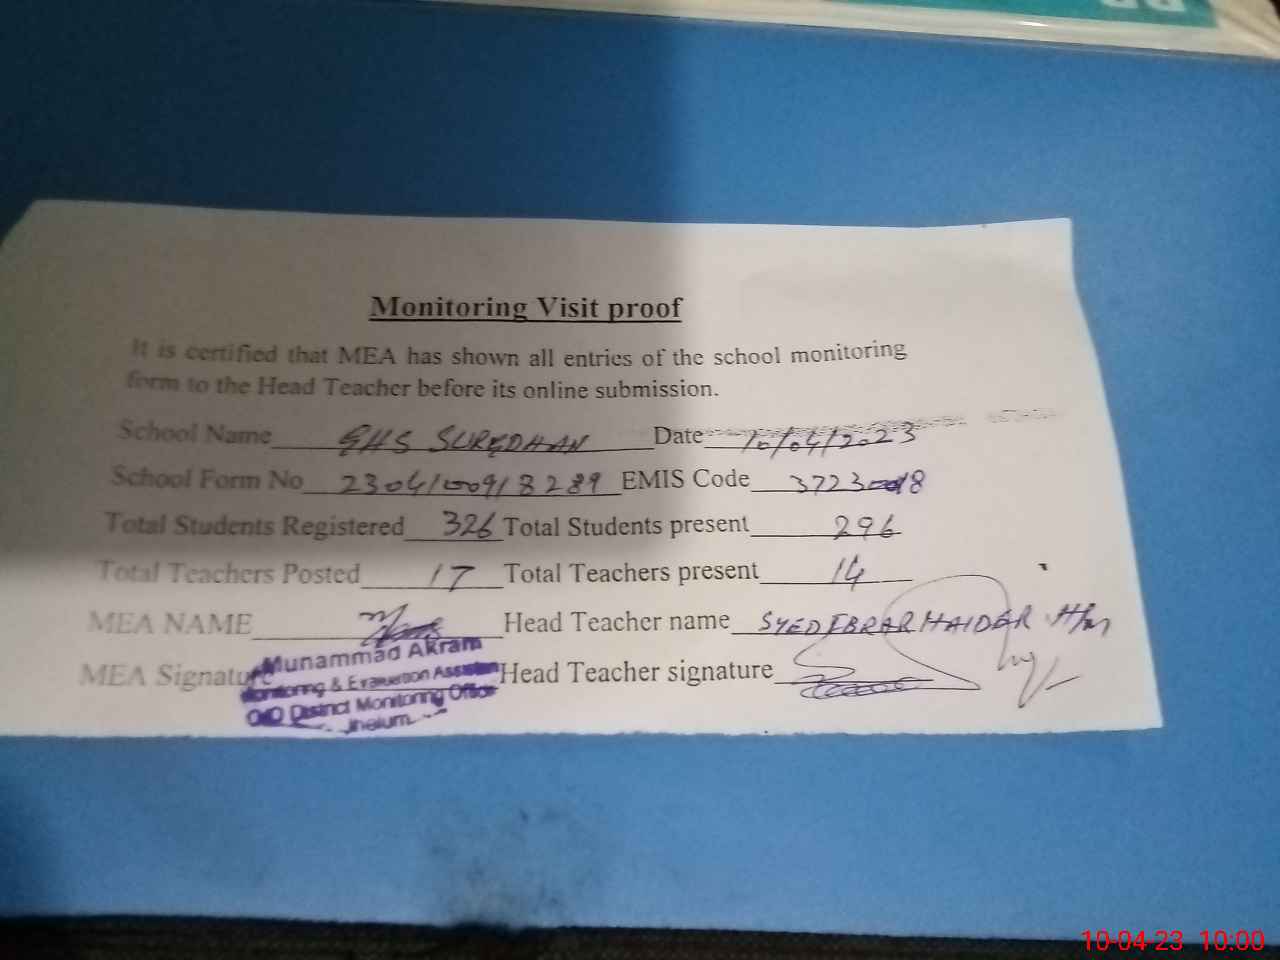 Monitoring Visit proof
It is certified that MEA has shown all entries of the school monitoring
form to the Head Teacher before its online submission.
School Name GHS SUREDHAN Date 10/04/2023
School Form No Emis Code 3723
Total Students Registered 326 Total Students present 296
Total Teachers Posted 17 Total Teachers present 14
MEA NAME Head Teacher name SYED IBRAR HAIDER H/m
Muhammad Akram
MEA Signature Head Teacher signature
Monitoring & Evaluation Assistant
O/O District Monitoring Officer
Jhelum
10-04-23 10:00